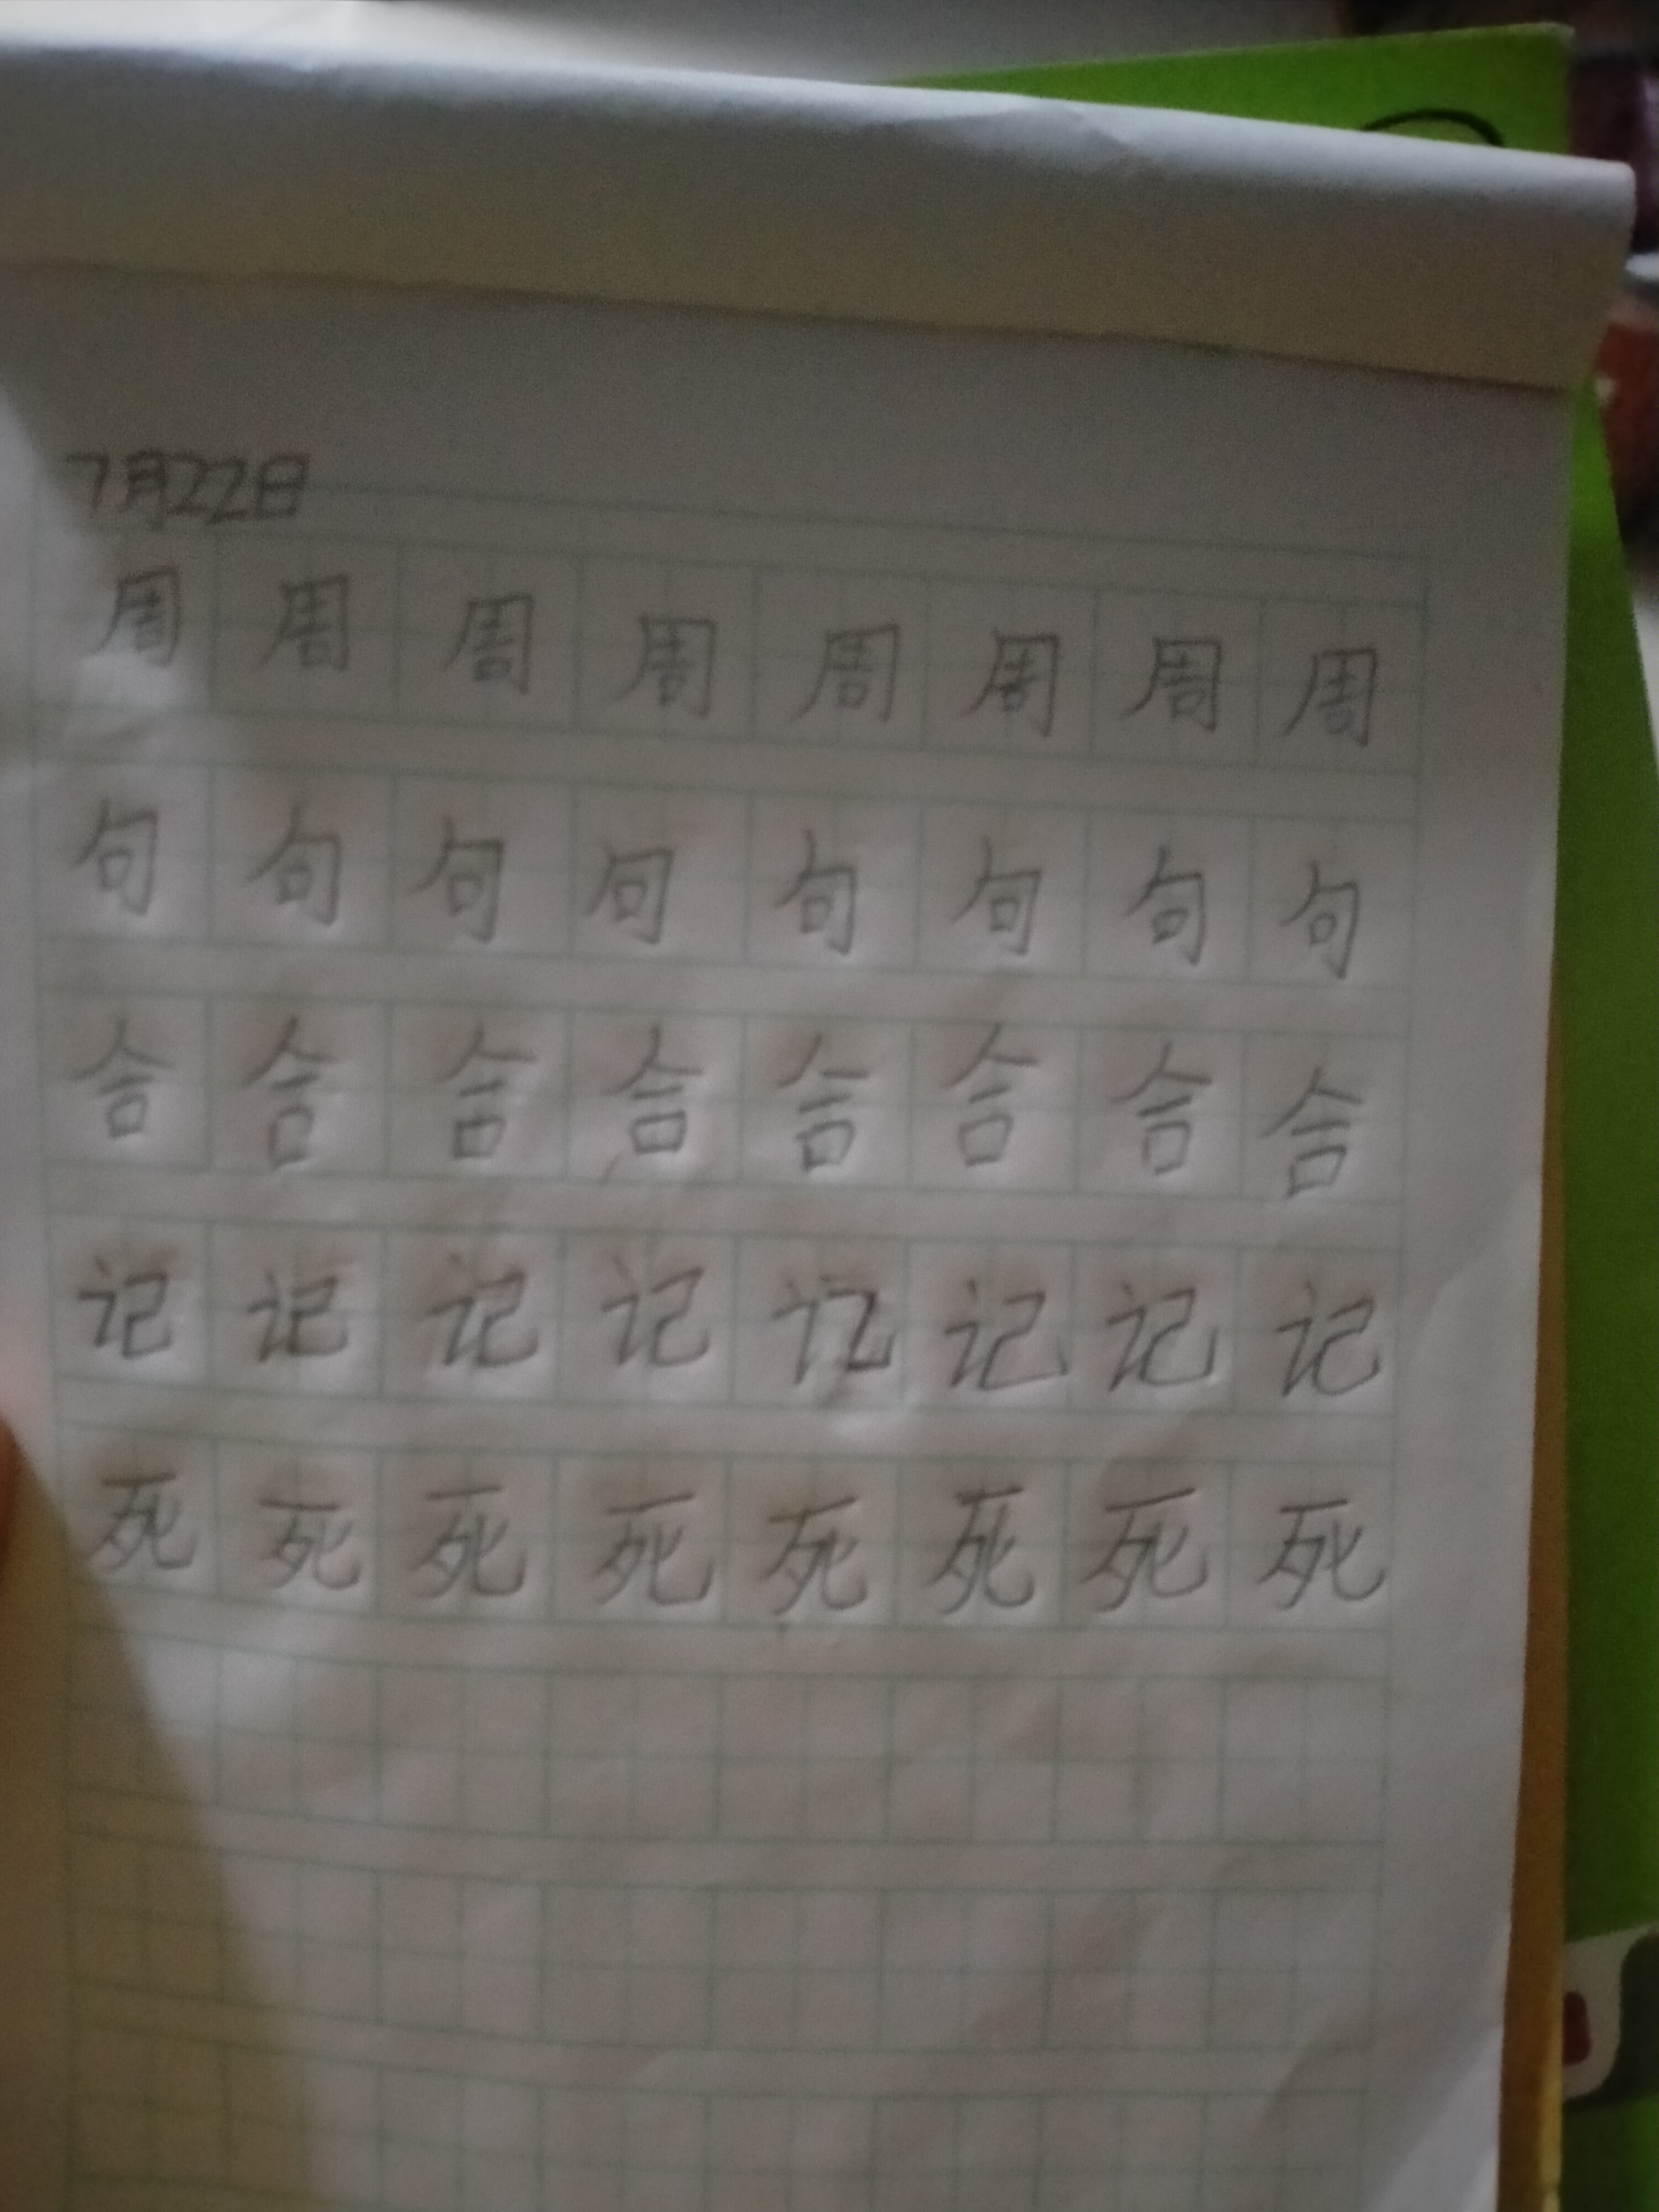 7月22日
周 周 周 周 周 周 周 周
句 句 句 句 句 句 句 句
合 合 合 合 合 合 合 合
记 记 记 记 记 记 记 记
死 死 死 死 死 死 死 死